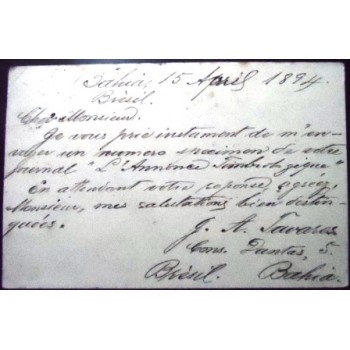 Bahia, 15 April 1894.
Brésil.
Cher Monsieur.
Je vous prie instament de m'en-
voyer un numero specimen de votre
journal "L'Annonce Timbrologique"
En attendant votre reponse, agréez,
Monsieur, mes salutations bien distin-
guées.
J. A. Tavares
Cons. Dantas, 5.
Brésil. Bahia.